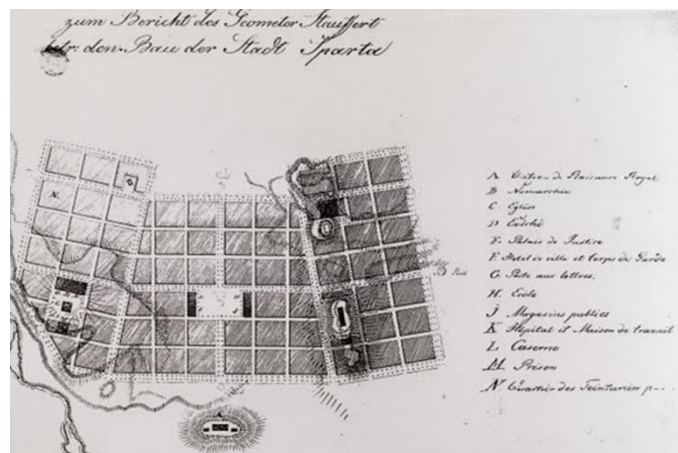 zum Bericht des Geometer Stauffert
betr: den Bau der Stadt Sparta
A Château de Plaisance Royal
B Nomarchie
C Eglise
D Evêché
E. Palais de Justice
F. Hôtel de ville et Corps de Garde
G. Poste aux lettres.
H. Ecole
J Magasins publics
K Hôpital et Maison de travail
L Caserne
M Prison
N Quartier des Teinturiers
N.